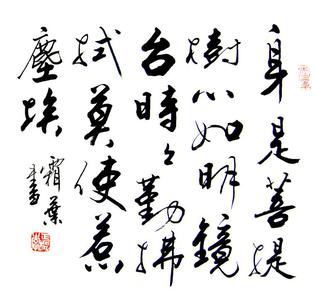 身是菩提
樹心如明鏡
台時々勤拂
拭莫使惹
塵埃
霜葉書